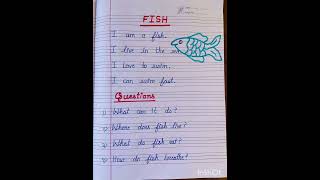 FISH
I am a fish.
I live in the
I love to swim.
I can swim fast.
Questions
1) What can it do?
2) Where does fish live?
3) What do fish eat?
4) How do fish breathe?